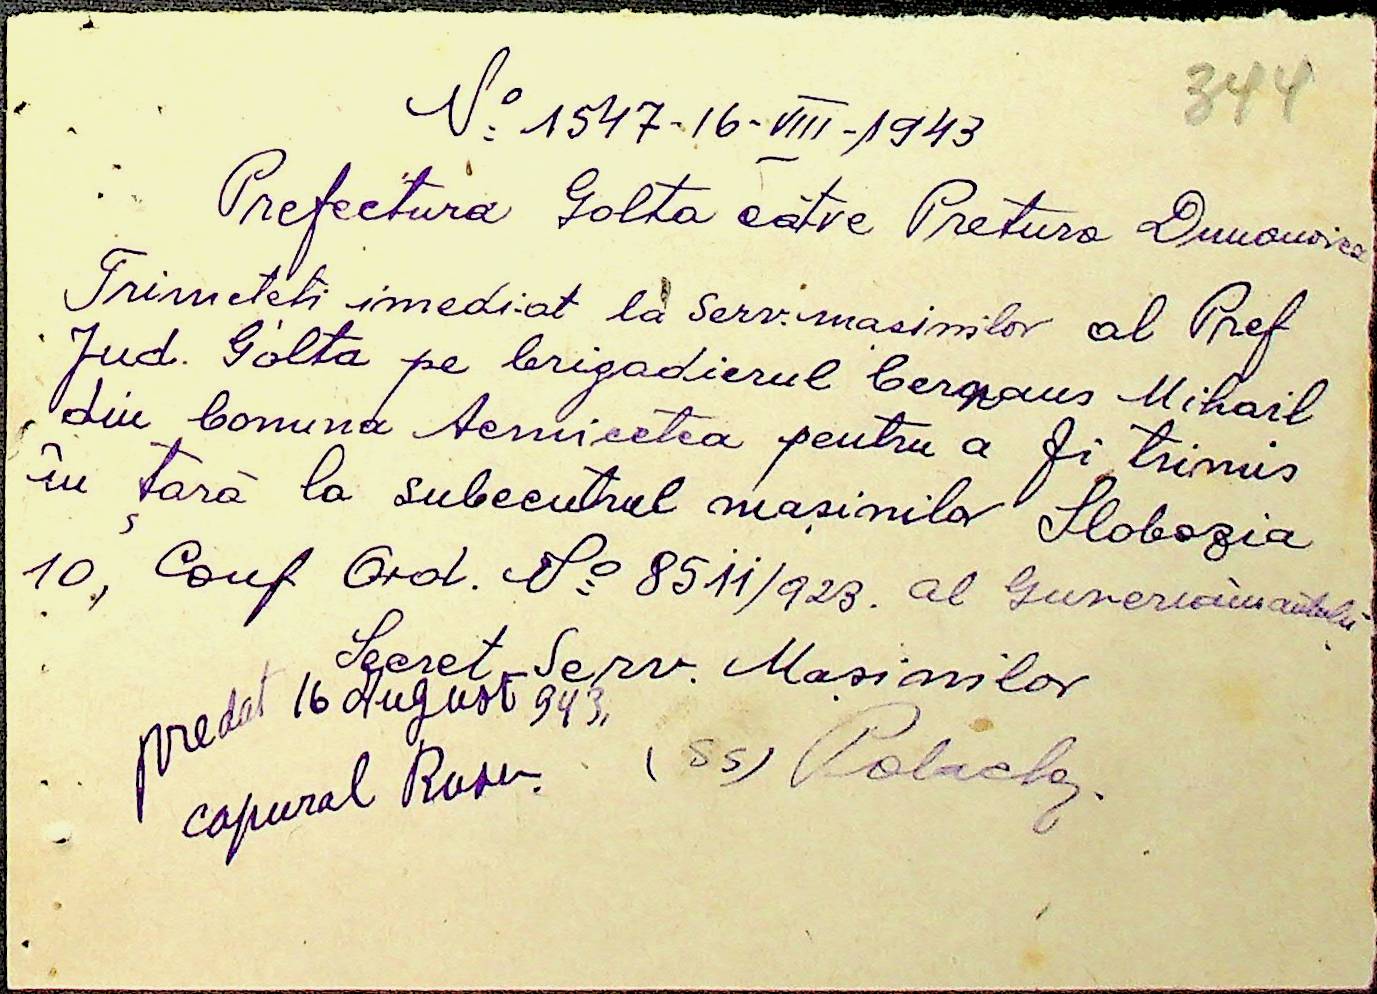 344
Nº 1547-16-VIII-1943
Prefectura Golta către Pretura Dumanovca
Trimeteti imediat la Serv. masinilor al Pref
Jud. Golta pe brigadierul Mihail
din Comuna pentru a fi trimis
în țară la subcentrul masinilor Slobozia
10, Conf Ord. Nº 8511/923. al Guvernământului
Secret Serv. Masinilor
predat 16 August 943,
(ss)
caporal Rusu.